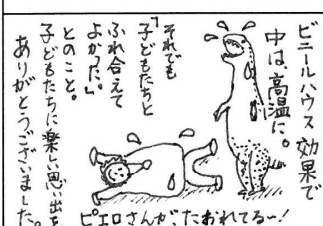 ビニールハウス効果で
中は、高温に。
それでも
「子どもたちと
ふれ合えて
よかった。」
とのこと。
子どもたちに楽しい思い出を
ありがとうございました。
ピエロさんが、たおれてる〜!